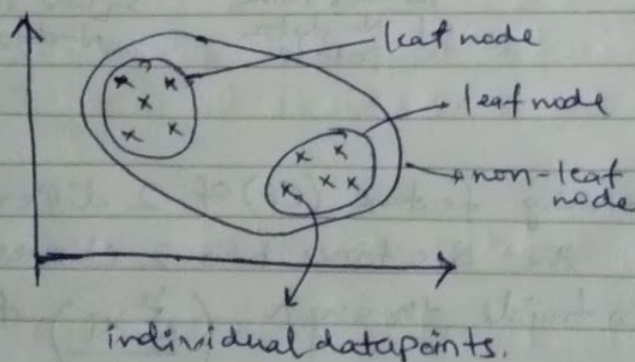 leaf node
leaf node
non-leaf
node
individual datapoints.